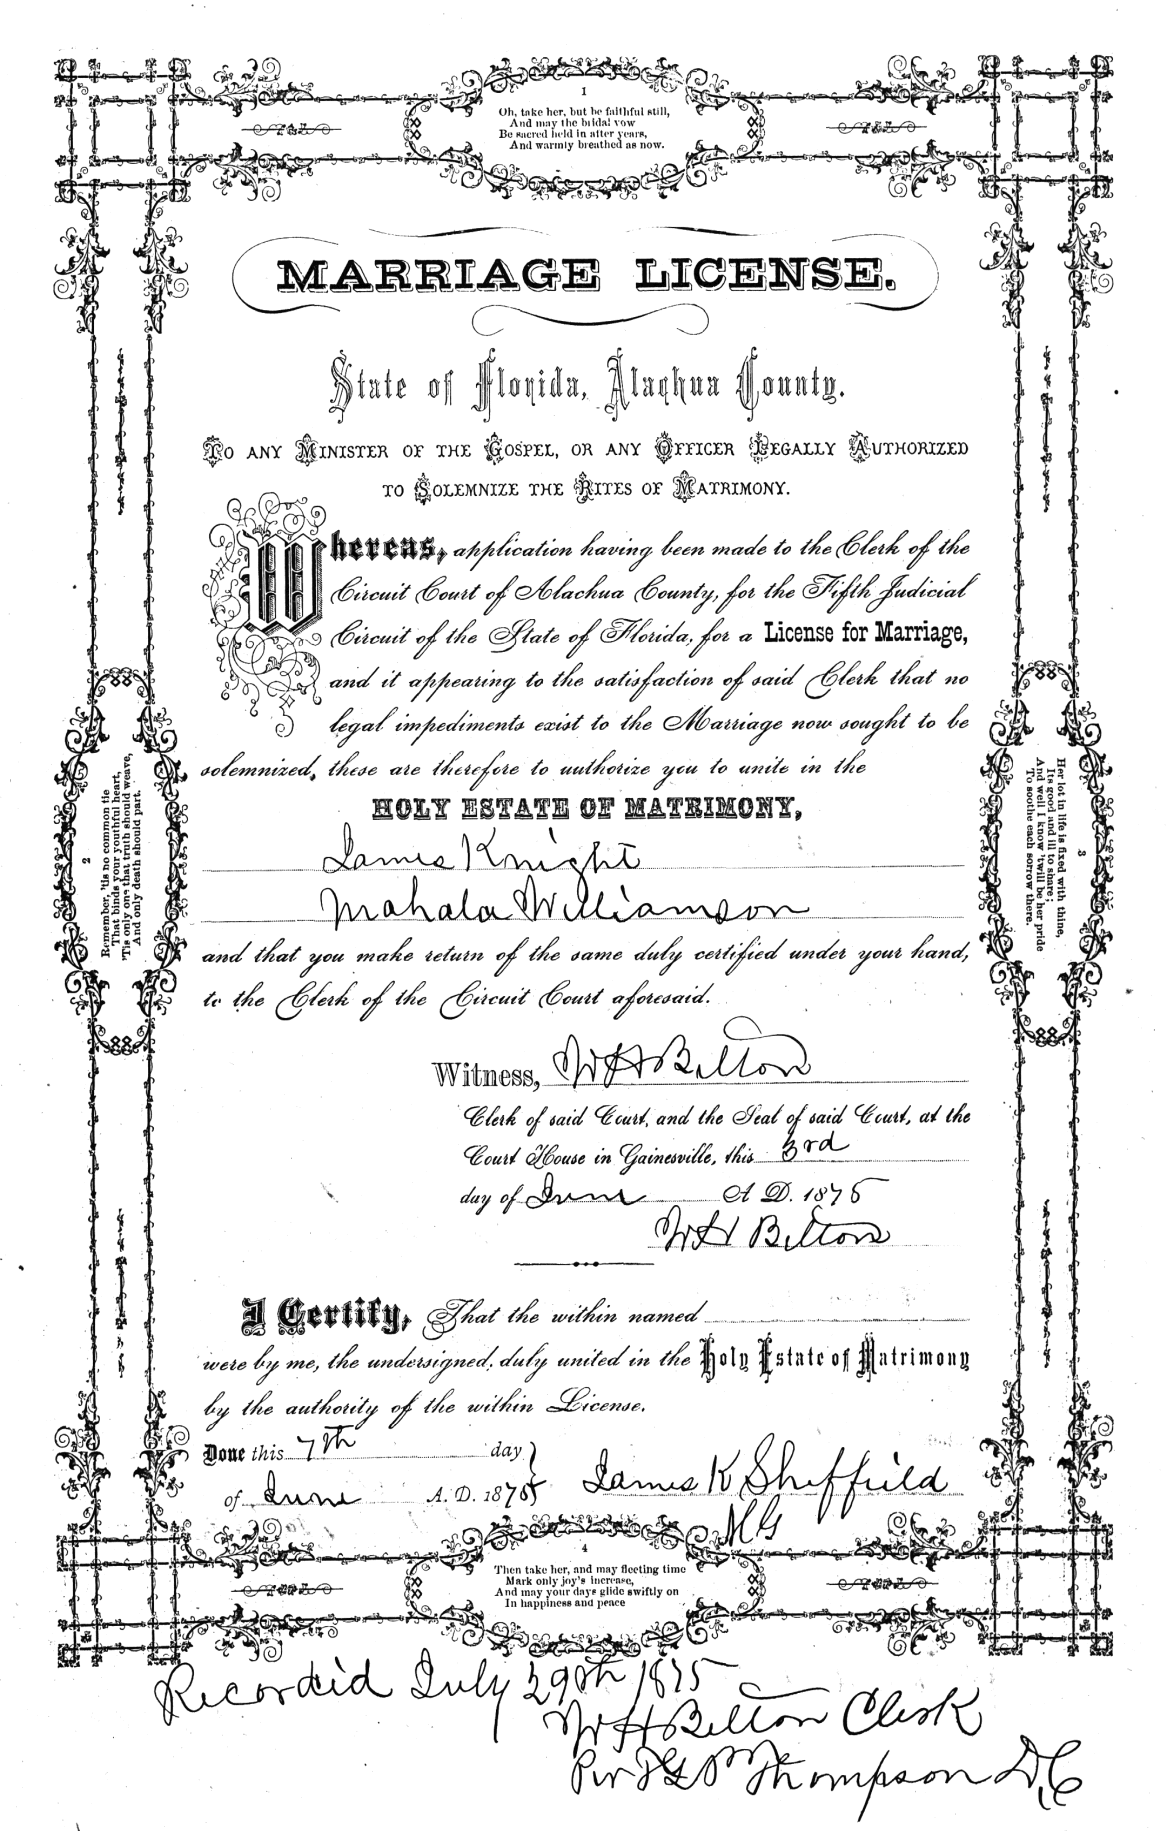 1
Oh, take her, but be faithful still,
And may the bridal vow
Be sacred held in after years,
And warmly breathed as now.
MARRIAGE LICENSE.
State of Florida, Alachua County.
TO ANY MINISTER OF THE GOSPEL, OR ANY OFFICER LEGALLY AUTHORIZED
TO SOLEMNIZE THE RITES OF MATRIMONY.
Whereas, application having been made to the Clerk of the
Circuit Court of Alachua County, for the Fifth Judicial
Circuit of the State of Florida, for a License for Marriage,
and it appearing to the satisfaction of said Clerk that no
legal impediments exist to the Marriage now sought to be
solemnized, these are therefore to authorize you to unite in the
HOLY ESTATE OF MATRIMONY,
James Knight
Mahala Williamson
and that you make return of the same duly certified under your hand,
to the Clerk of the Circuit Court aforesaid.
Witness, W H Belton
Clerk of said Court, and the Seal of said Court, at the
Court House in Gainesville, this 3rd
day of June A D. 1875
W H Belton
I Certify, That the within named
were by me, the undersigned, duly united in the Holy Estate of Matrimony
by the authority of the within License.
Done this 7th day
of June A. D. 1875
James K Sheffield
M G
2
Remember, 'tis no common tie
That binds your youthful heart,
'Tis only one that truth should weave,
And only death should part.
3
Her lot in life is fixed with thine,
Its good and ill to share;
And well I know 'twill be her pride
To soothe each sorrow there.
4
Then take her, and may fleeting time
Mark only joy's increase,
And may your days glide swiftly on
In happiness and peace
Recorded July 29th 1875
W H Belton Clerk
Per Thompson D,C